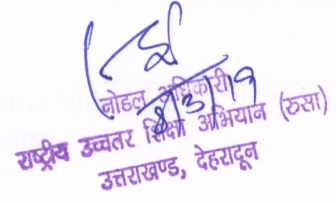 नोडल अधिकारी
8/3/19
राष्ट्रीय उच्चतर शिक्षा अभियान (रुसा)
उत्तराखण्ड, देहरादून